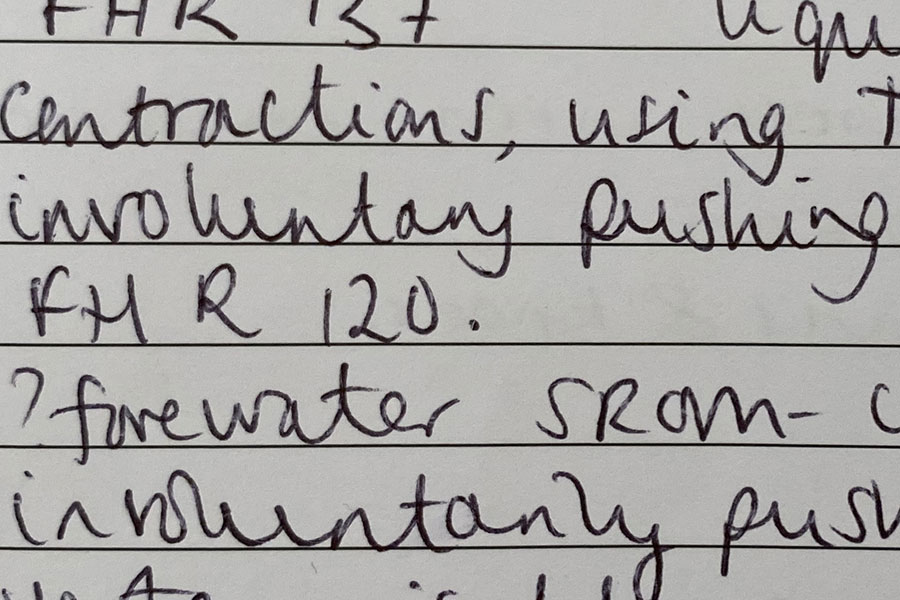 FHR 137 liqu
contractions, using T
involuntary pushing
FHR 120.
? forewater SROM - c
involuntarily push